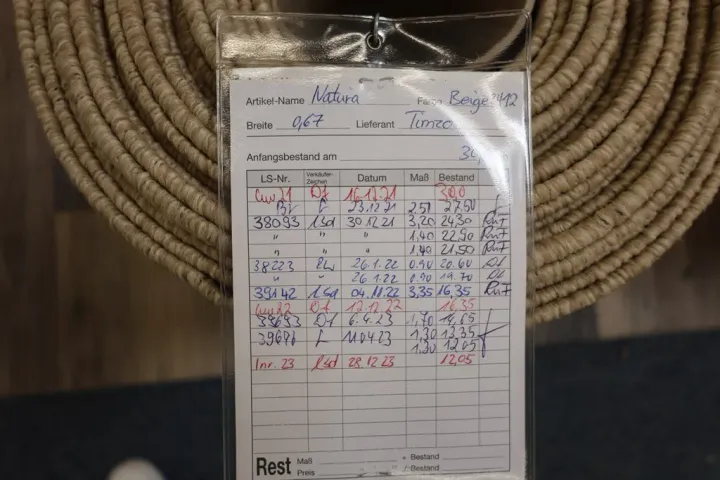 Artikel-Name Natura Farbe Beige 412
Breite 0,67 Lieferant Timzo
Anfangsbestand am 30,
LS-Nr. Verkäufer-Zeichen Datum Maß Bestand
21 Df 16.12.21 30,0
23.12.21 2,50 27,50
38093 lsd 30.12.21 3,20 24,30
" " 1,40 22,90
" " 1,40 21,50
38223 26.1.22 0,90 20,60
" " 26.1.22 0,90 19,70
39142 lsd 04.11.22 3,35 16,35
22 Df 12.12.22 16,35
Df 6.4.23 1,70 14,65
L 11.04.23 1,30 13,35
1,30 12,05
Inv. 23 lsd 28.12.23 12,05
Rest Maß Bestand
Preis Bestand